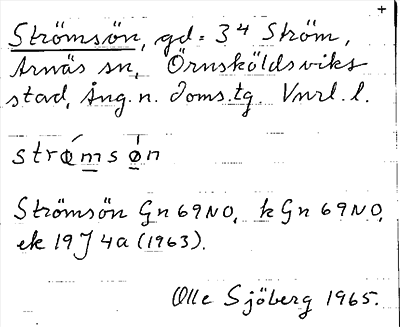 +
Strömsön, gd = 3⁴ Ström,
Arnäs sn, Örnsköldsviks
stad, Ång. n. doms.tg. Vnrl. l.
strǿm̲s ø̲n
Strömsön Gn 69 NO, k Gn 69 NO,
ek 19 J 4a (1963).
Olle Sjöberg 1965.